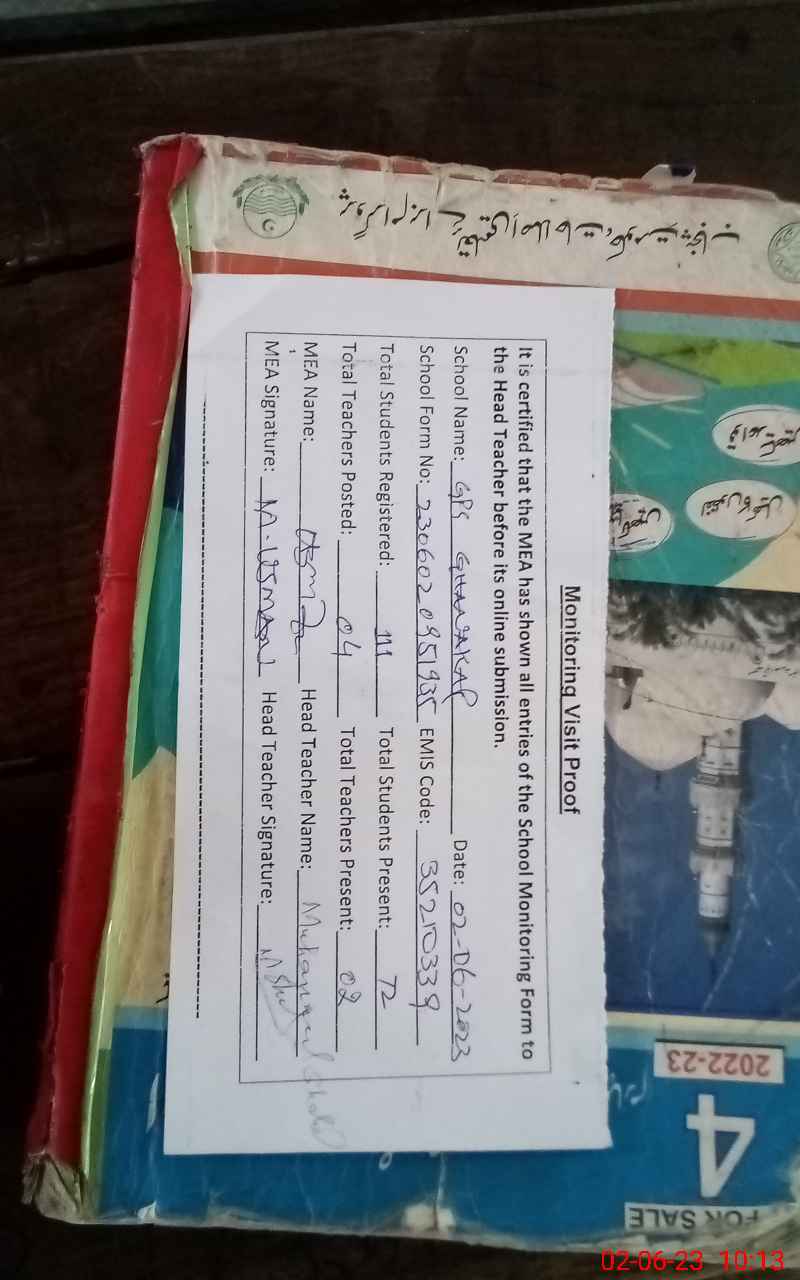 Monitoring Visit Proof
It is certified that the MEA has shown all entries of the School Monitoring Form to
the Head Teacher before its online submission.
School Name: GPS Date: 02-06-2023
School Form No: 2306020951935 EMIS Code: 35210339
Total Students Registered: 111 Total Students Present: 72
Total Teachers Posted: 04 Total Teachers Present: 02
MEA Name: Head Teacher Name: Muhammad
MEA Signature: M-USMAN Head Teacher Signature:
2022-23
4
FOR SALE
02-06-23 10:13